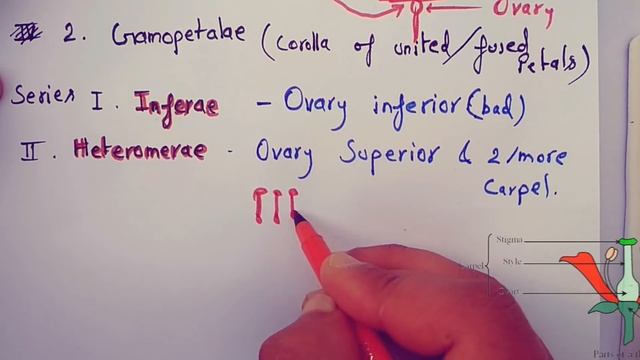 Ovary
2. Gamopetalae (Corolla of united/fused
Petals)
Series I. Inferae - Ovary inferior (bad)
II. Heteromerae - Ovary Superior & 2/more
Carpel.
Stigma
Style